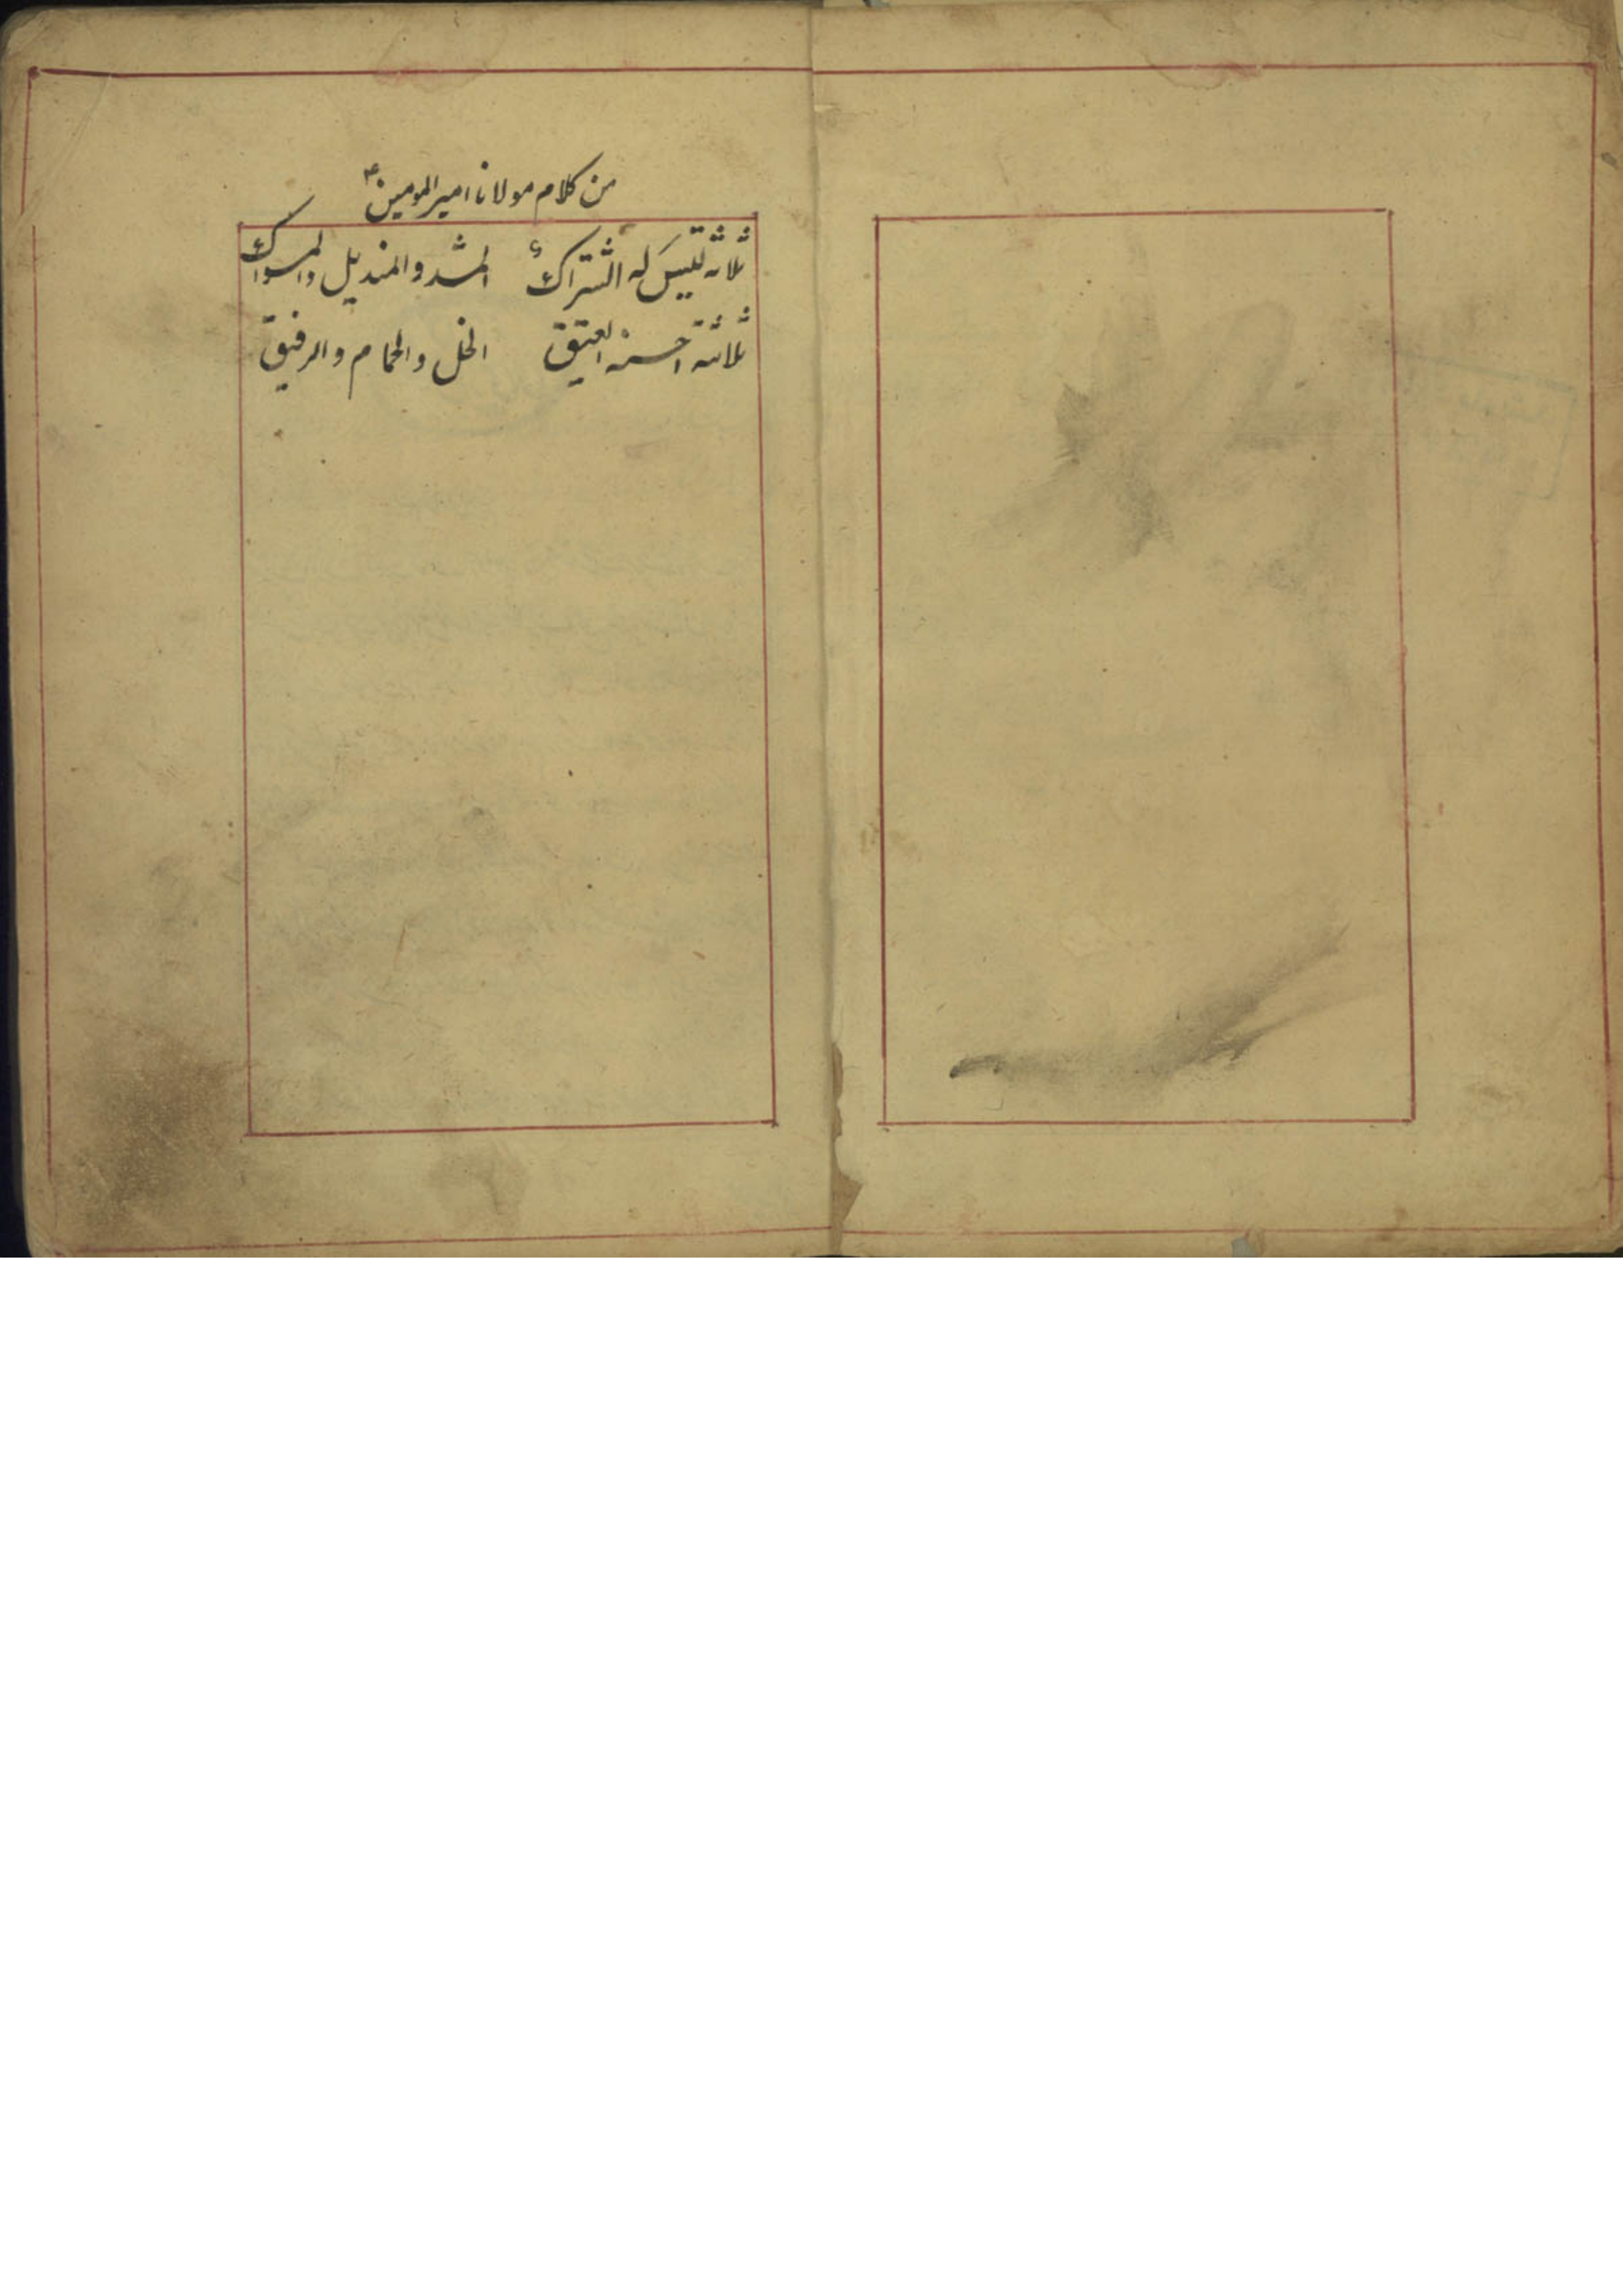 من كلام مولانا اميرالمومنين ع
ثلاثه ليسَ له اشتراك المشد والمنديل والمسواك
ثلاثة احسنه العتيق الخل والحمام والرفيق